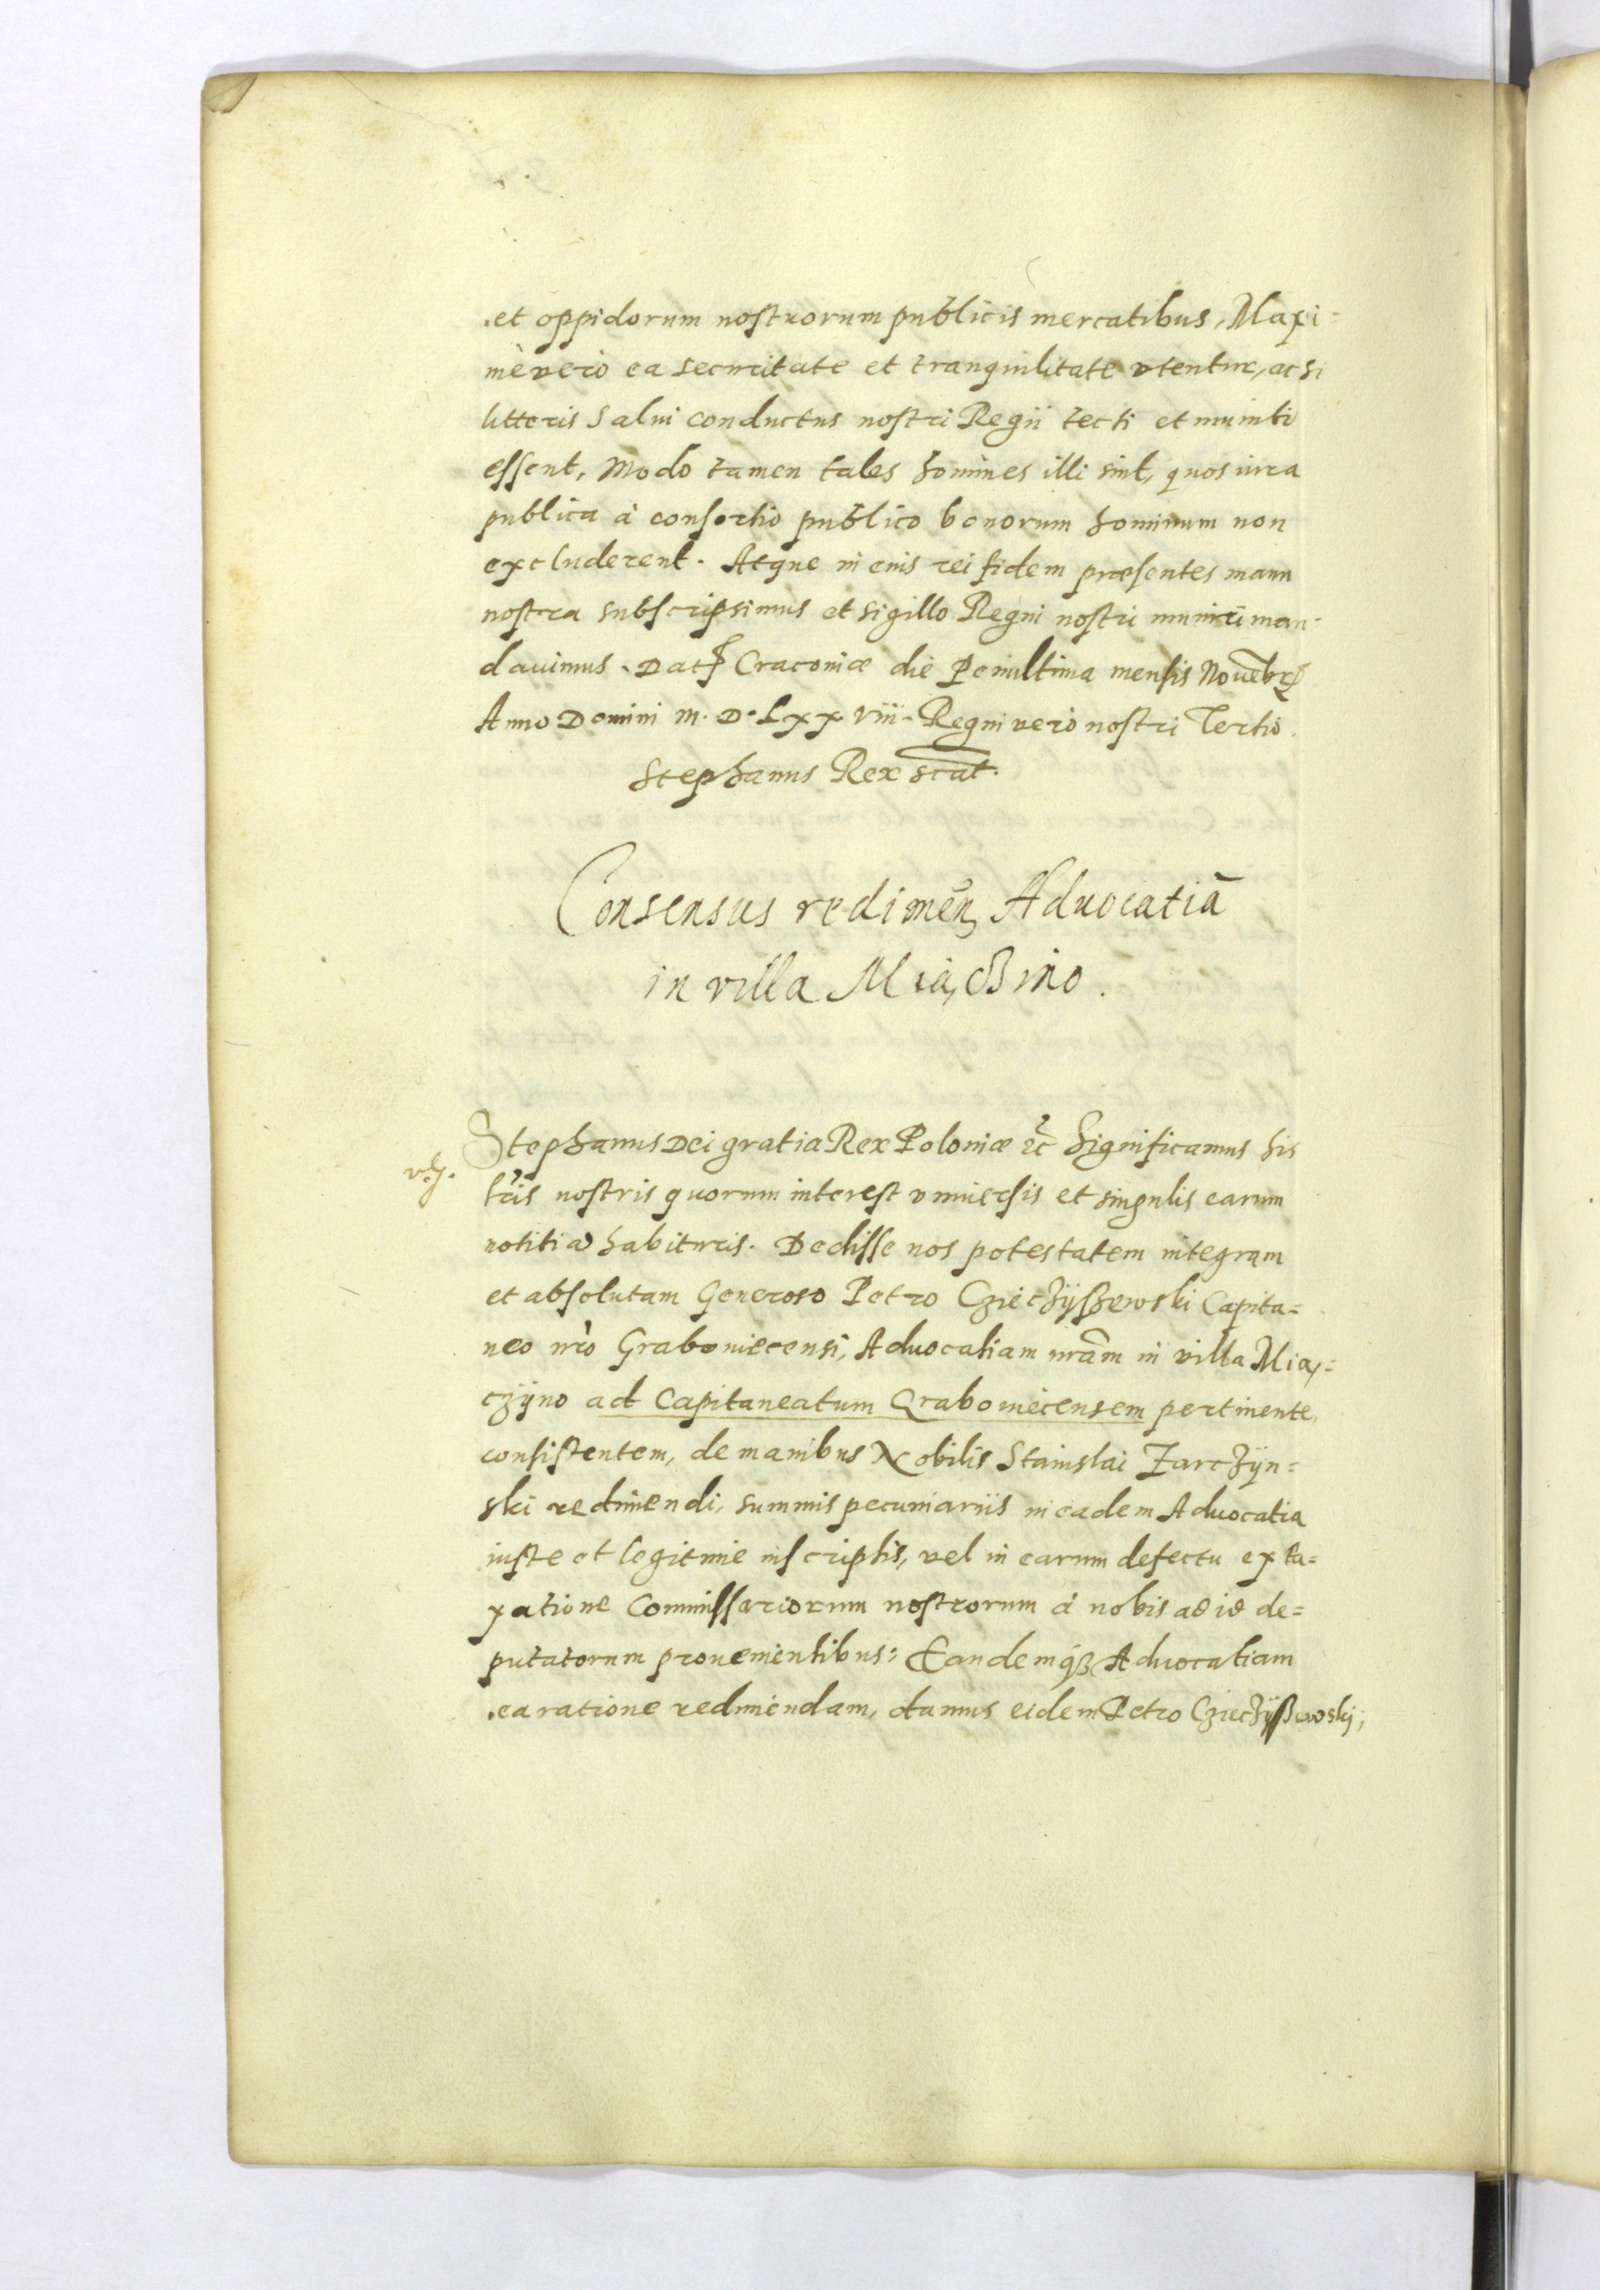 et oppidorum nostrorum publicis mercatibus, Maxi=
mè verò ea securitate et tranquilitate vtentur, ac si
litteris Salui conductus nostri Regii tecti et muniti
essent, Modo tamen tales homines illi sint, quos iura
publica à consortio publico bonorum hominum non
excluderent. Atque in eius rei fidem præsentes manu
nostra subscripsimus et sigillo Regni nostri muniri man-
dauimus. Dat̃ Cracouiæ die Penultima mensis Nouẽbr̃
Anno Domini M. D. Lxx viii. Regni verò nostri Tertio.
Stephanus Rex sc̃at.
Consensus redimẽn Aduocatiã
in villa Miączino.
Stephanus Dei gratia Rex Poloniæ etc̃ Significamus his
lr̃is nostris quorum interest vniuersis et singulis earum
notitia habituris. Dedisse nos potestatem integram
et absolutam Generoso Petro Cziecżÿszewski Capita=
neo nr̃o Graboviecensi, Aduocatiam nr̃am in villa Mią=
czÿno ad Capitaneatum Graboviecensem pertinente,
consistentem, de manibus Nobilis Stanislai Żarczÿn=
ski redimendi, summis pecuniariis in eadem Aduocatia
iuste et legitime inscriptis, vel in earum defectu ex ta=
xatione Commissariorum nostrorum à nobis ad id de=
putatorum prouenientibus: Eandemq3 Aduocatiam
ea ratione redimendam, damus eidem Petro Cziecżÿszewski;